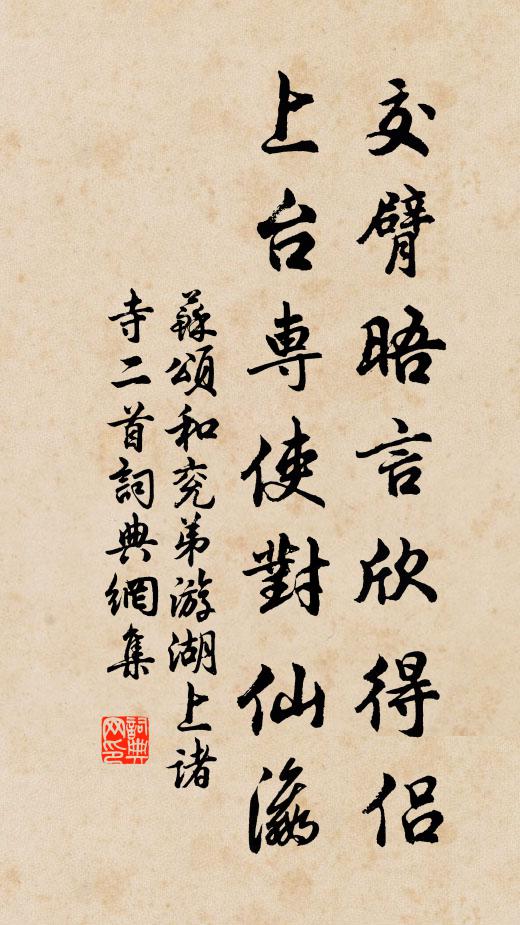 交臂晤言欣得侣
上台専使對仙瀛
蘇頌和兖弟游湖上諸
寺二首詞典網集
詞典网印